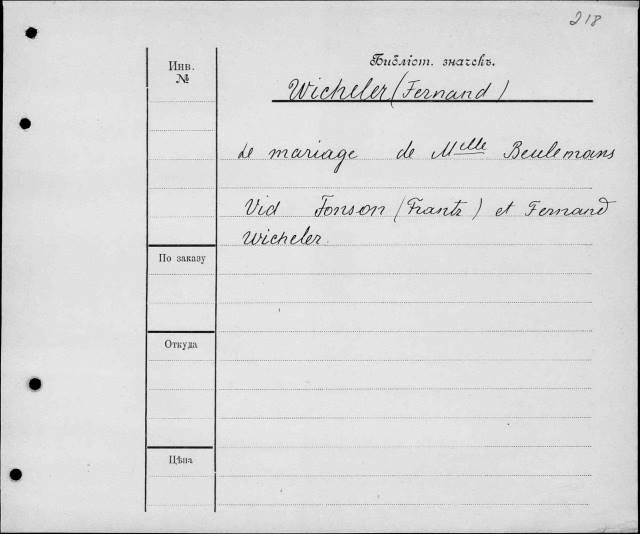 218
Инв.
№
Библіот. значекъ.
Wicheler (Fernand)
Le mariage de Melle Beulemans
Vid Fonson (Frantz) et Fernand
Wicheler.
По заказу
Откуда
Цѣна